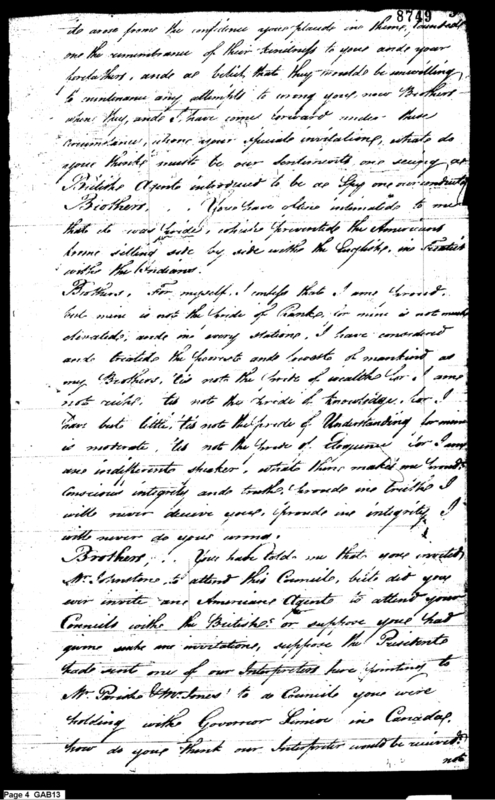 8749
do arose from the confidence you placed in them,
on the remembrance of their kindness to you and your
forefathers, and a belief, that they would be unwilling
to countenance any attempts to wrong you, now Brothers
when they and I have come forward under these
circumstances, upon your special invitation, what do
you think must be our sentiments on seeing a
British Agent introduced to be a Spy on our conduct
Brothers You have also intimated to me
that it was pride, which prevented the Americans
from setting side by side with the English, in Treaties
with the Indians.
Brothers, For myself, I confess that I am proud,
but mine is not the pride of Rank, for mine is not much
elevated; and in every station, I have considered
and treated the poorest and lowest of mankind as
my Brothers, 'tis not the pride of wealth for I am
not rich, 'tis not the pride of knowledge, for I
have but little, 'tis not the pride of Understanding for mine
is moderate, 'tis not the pride of Eloquence for I am
an indifferent speaker, what then makes me proud?
Conscious integrity and truth, proud in truth I
will never deceive you, proud in integrity I
will never do you wrong.
Brothers You have told me that you invited
Mr. Johnstone, to attend this Council, but did you
ever invite an American Agent to attend your
Councils with the British? or suppose you had
given such an invitation, suppose the President
had sent one of our Interpreters here pointing to
Mr. Parish & Mr. Jones to a Council you were
holding with Governor Simcoe in Canada,
how do you think our Interpreter would be received
not
Page 4 GAB13